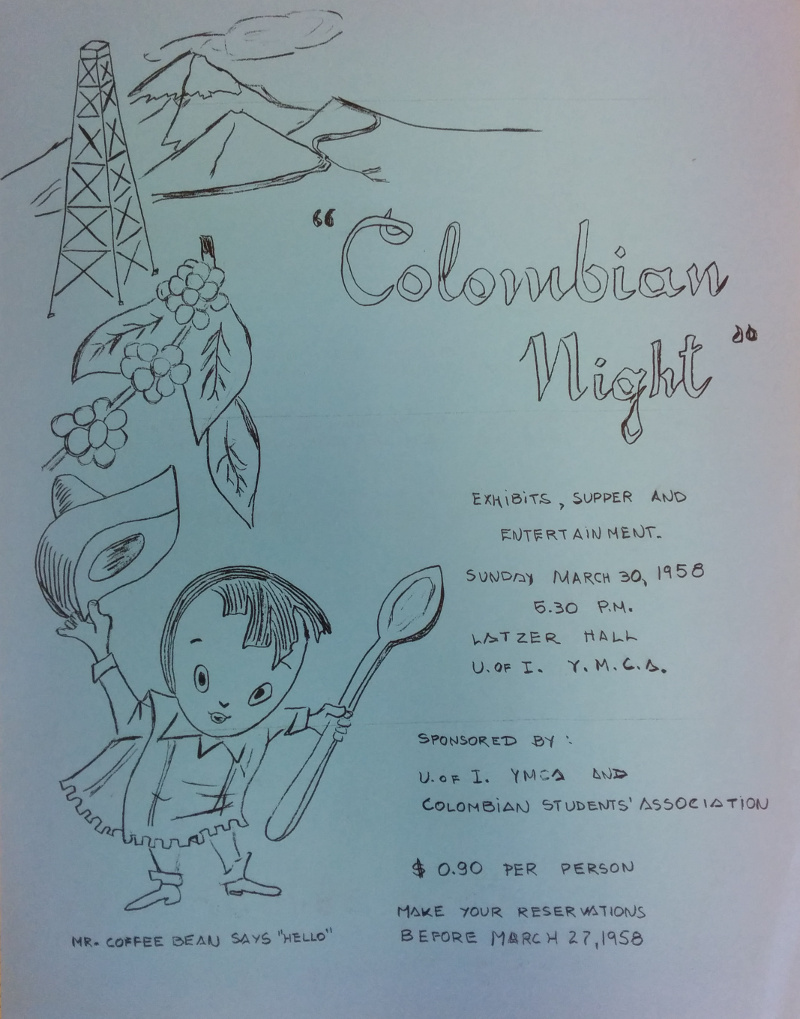 "Colombian
Night"
EXHIBITS, SUPPER AND
ENTERTAINMENT.
SUNDAY MARCH 30, 1958
5.30 P.M.
LATZER HALL
U. OF I. Y.M.C.A.
SPONSORED BY:
U. OF I. YMCA AND
COLOMBIAN STUDENTS' ASSOCIATION
$ 0.90 PER PERSON
MAKE YOUR RESERVATIONS
BEFORE MARCH 27, 1958
MR. COFFEE BEAN SAYS "HELLO"